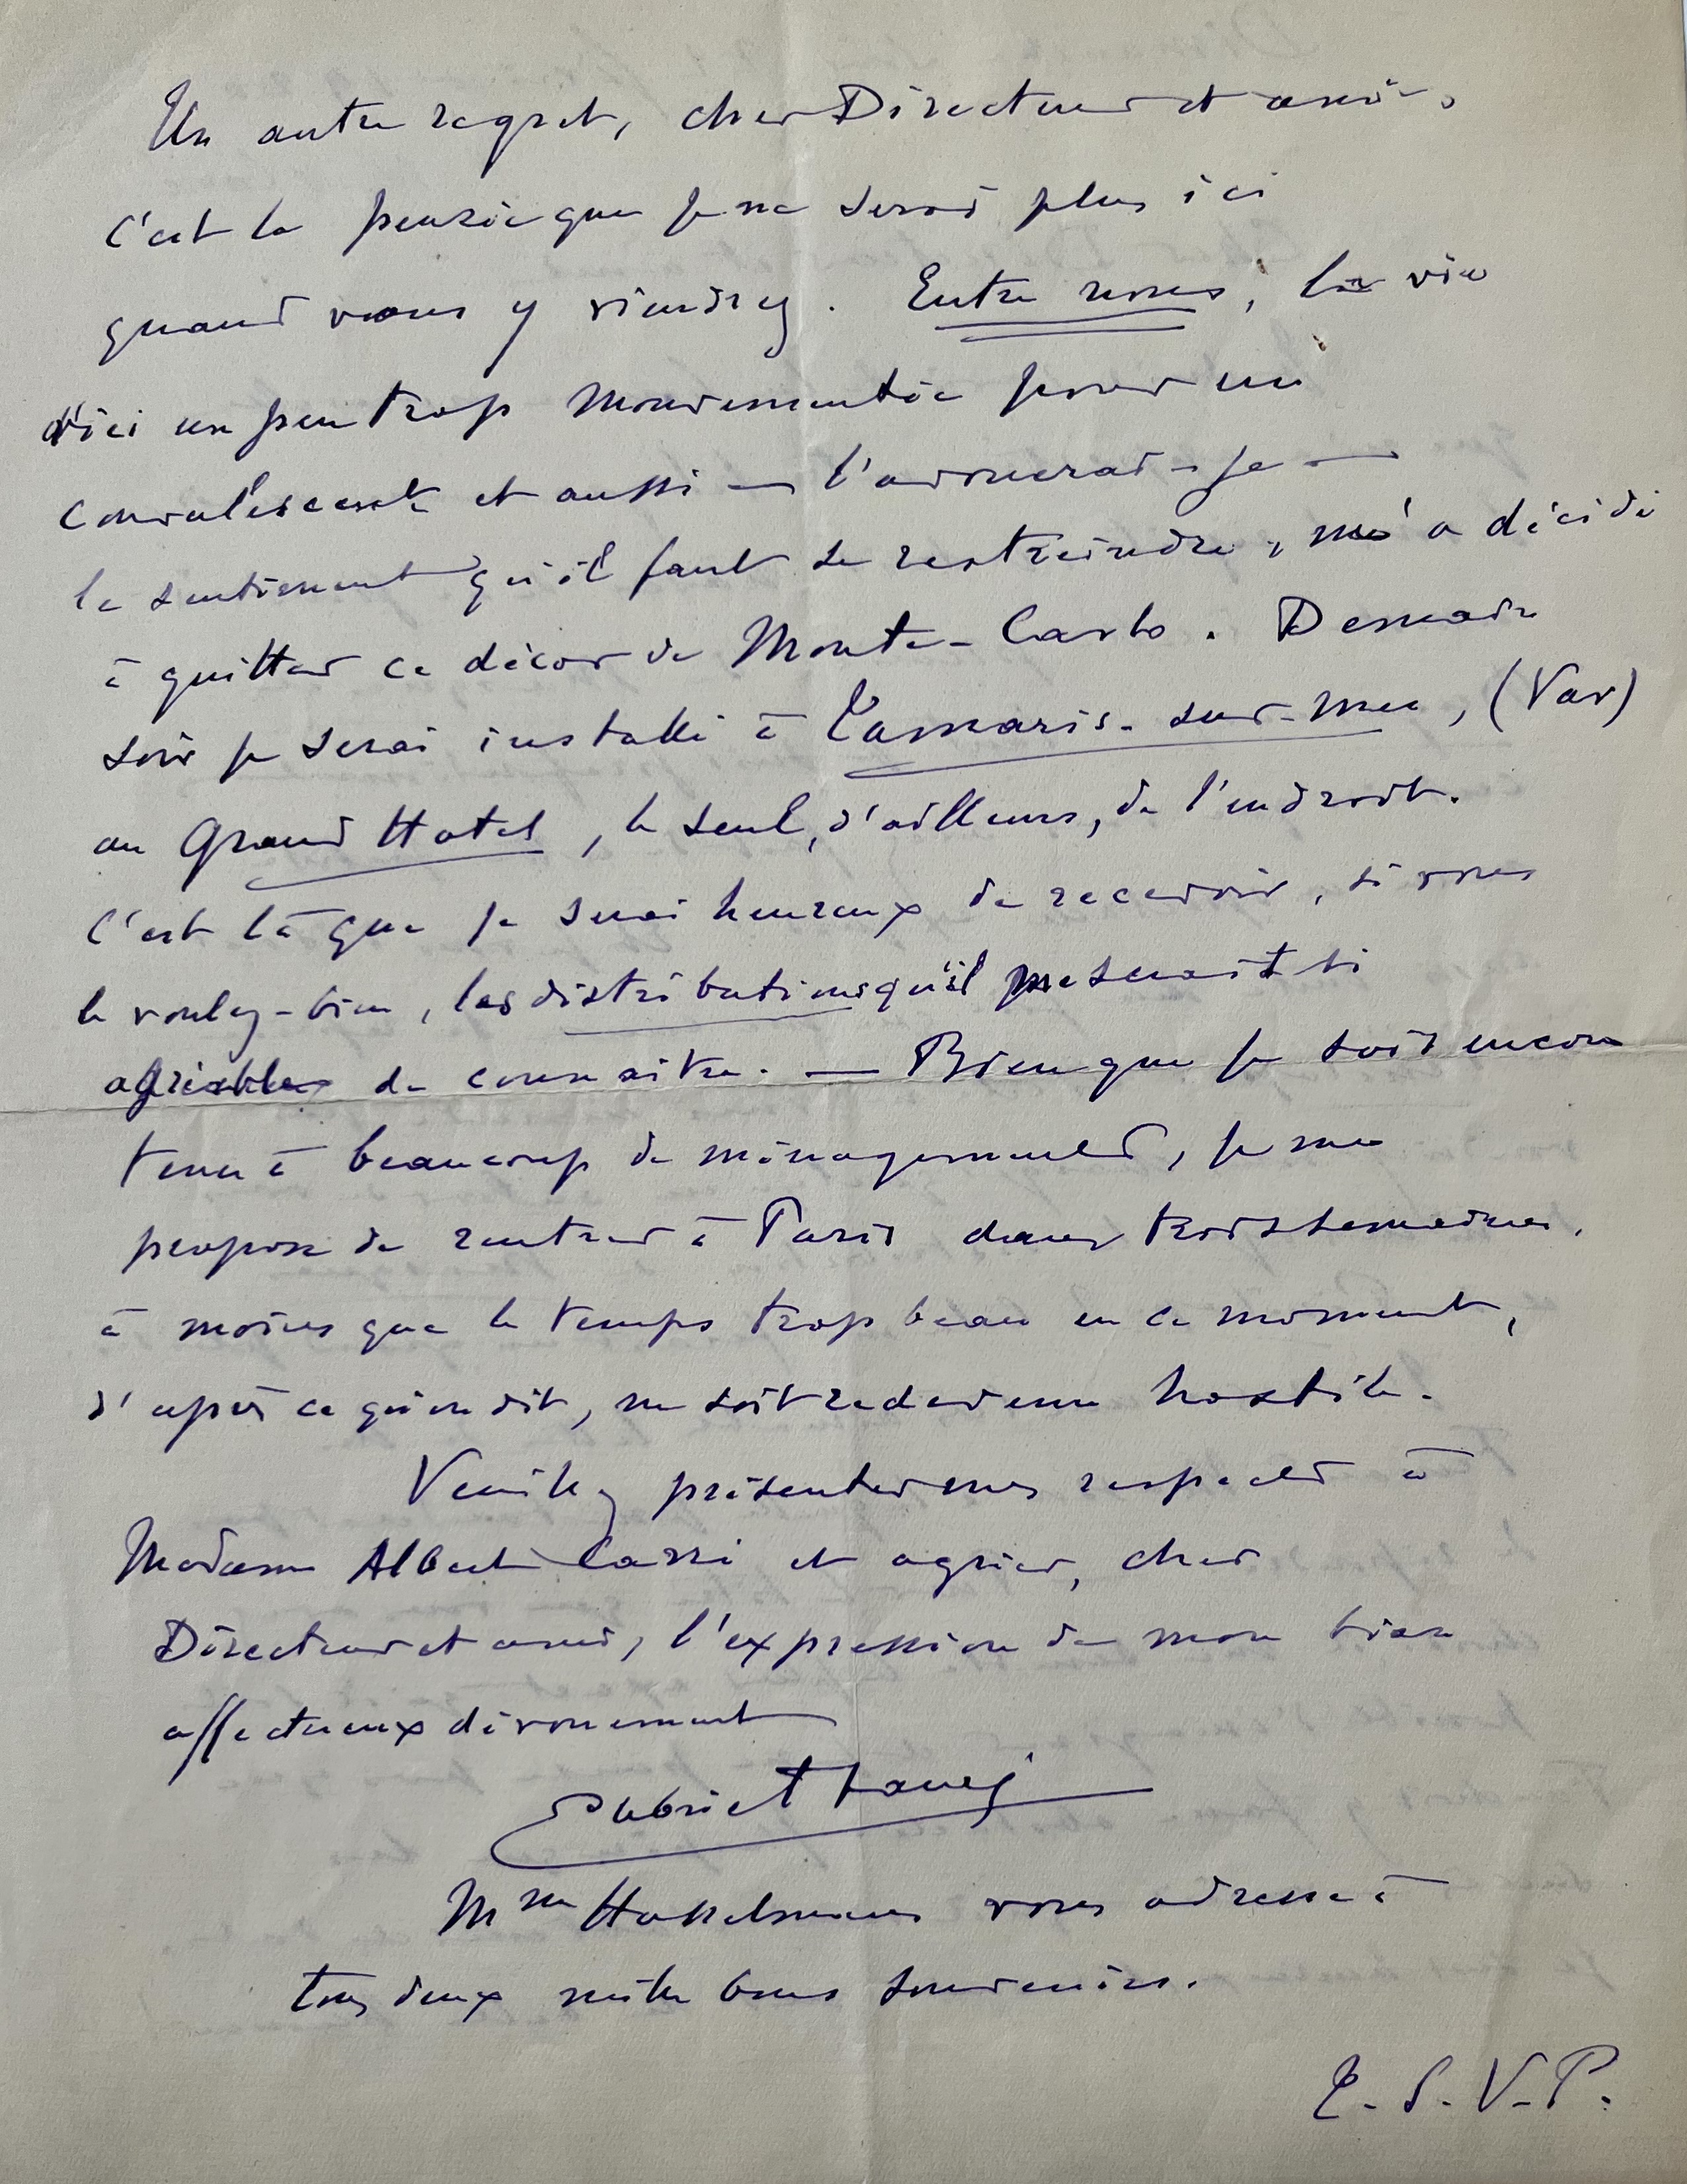 Un autre regret, cher Directeur et ami,
c'est la pensée que je ne serai plus ici
quand vous y viendrez. Entre nous, la vie
d'ici un peu trop mouvementée pour un
convalescent et aussi — l'avouerai-je —
le sentiment qu'il faut se restreindre, m'a décidé
à quitter ce décor de Monte-Carlo. Demain
soir je serai installé à Tamaris-sur-mer, (Var)
au Grand Hotel, le seul, d'ailleurs, de l'endroit.
C'est là que je serai heureux de recevoir, si vous
le voulez-bien, les distributions qu'il me serait si
agréable de connaître. — Bien que je sois encore
tenu à beaucoup de ménagements, je me
propose de rentrer à Paris dans trois semaines,
à moins que le temps trop beau en ce moment,
d'après ce qu'on dit, ne soit redevenu hostile.
Veuillez présenter mes respects à
Madame Albert Carré et agréer, cher
Directeur et ami, l'expression de mon bien
affectueux dévouement
Gabriel Fauré
Mme Hasselmans vous adresse à
tous deux mille bons souvenirs.
T.S.V.P.